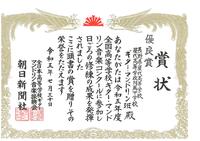 優良賞
賞状
ギター・マンドリン班殿
あなたがたは令和五年度
全国高等学校ギター・マンド
リン音楽コンクールに参加し
日ごろの修練の成果を発揮
されました
ここに頭書の賞を贈りその
栄誉をたたえます
令和五年七月三十日
朝日新聞社